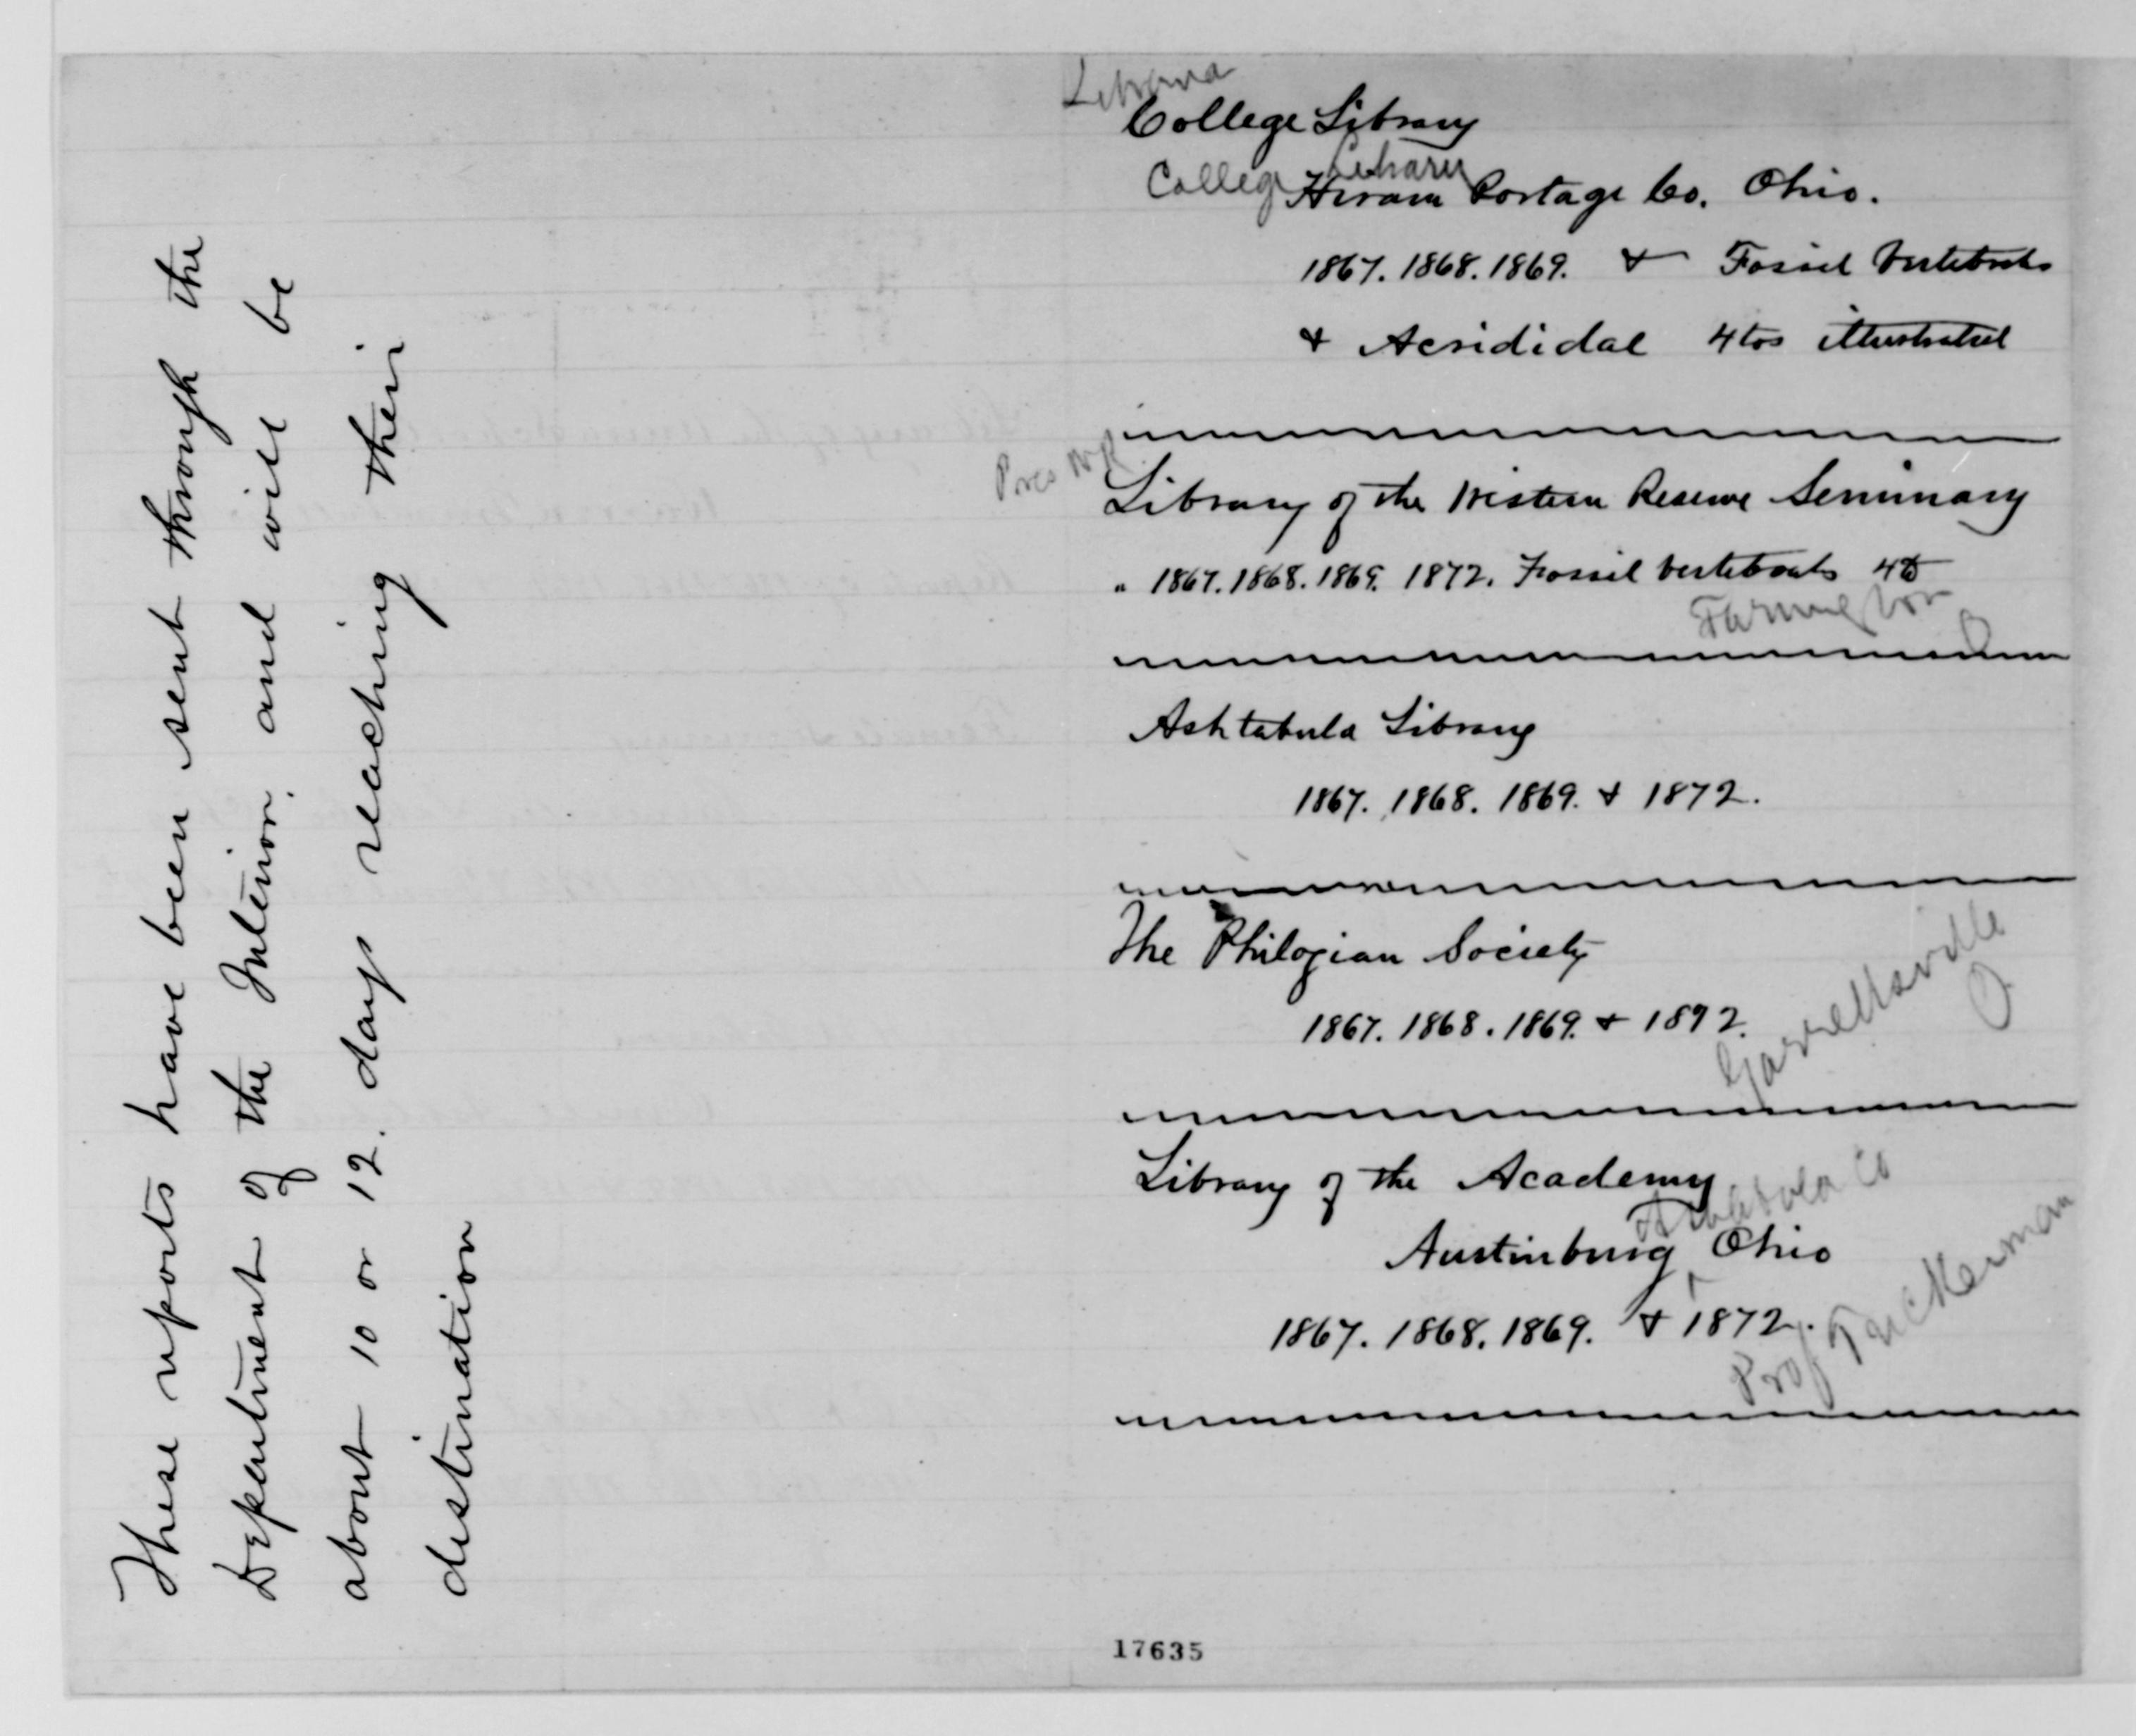 These reports have been sent through the
Department of the Interior, and will be
about 10 or 12. days reaching their
destination
College Library
College Library
Hiram Portage Co. Ohio.
1867. 1868. 1869. & Fossil Vertebrats
& Acrididae 4tos illustrated
Pres
Library of the Western Reserve Seminary
" 1867. 1868. 1869. 1872. Fossil Vertebrats 4to
Farmington
O
Ashtabula Library
1867. 1868. 1869. & 1872.
The Philogian Society
1867. 1868. 1869. & 1872.
Garrettsville
O
Library of the Academy
Ashtabula Co
Austinburg Ohio
1867. 1868. 1869. & 1872.
Prof Tuckerman
17635